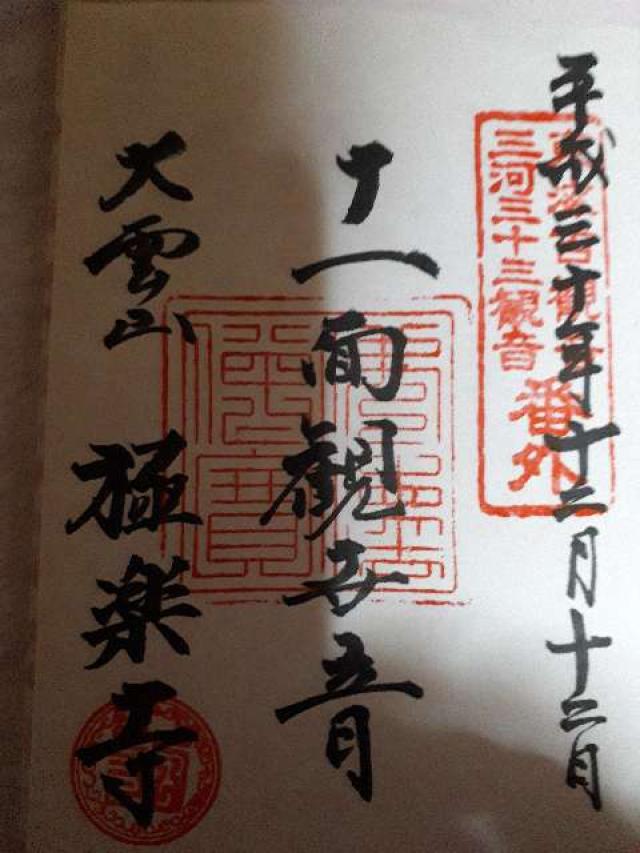 平成三十年十二月十二日
東海百觀音
三河三十三觀音
番外
十一面観世音
大雲山 極楽寺